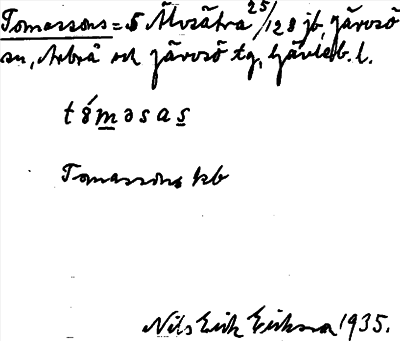 Tomassons = 5 Älvsätra 25/128 jb, Järvsö
sn, Arbrå och Järvsö tg, Gävleb. l.
tómasas
Tomassons kb
Nils Erik Eriksson 1935.